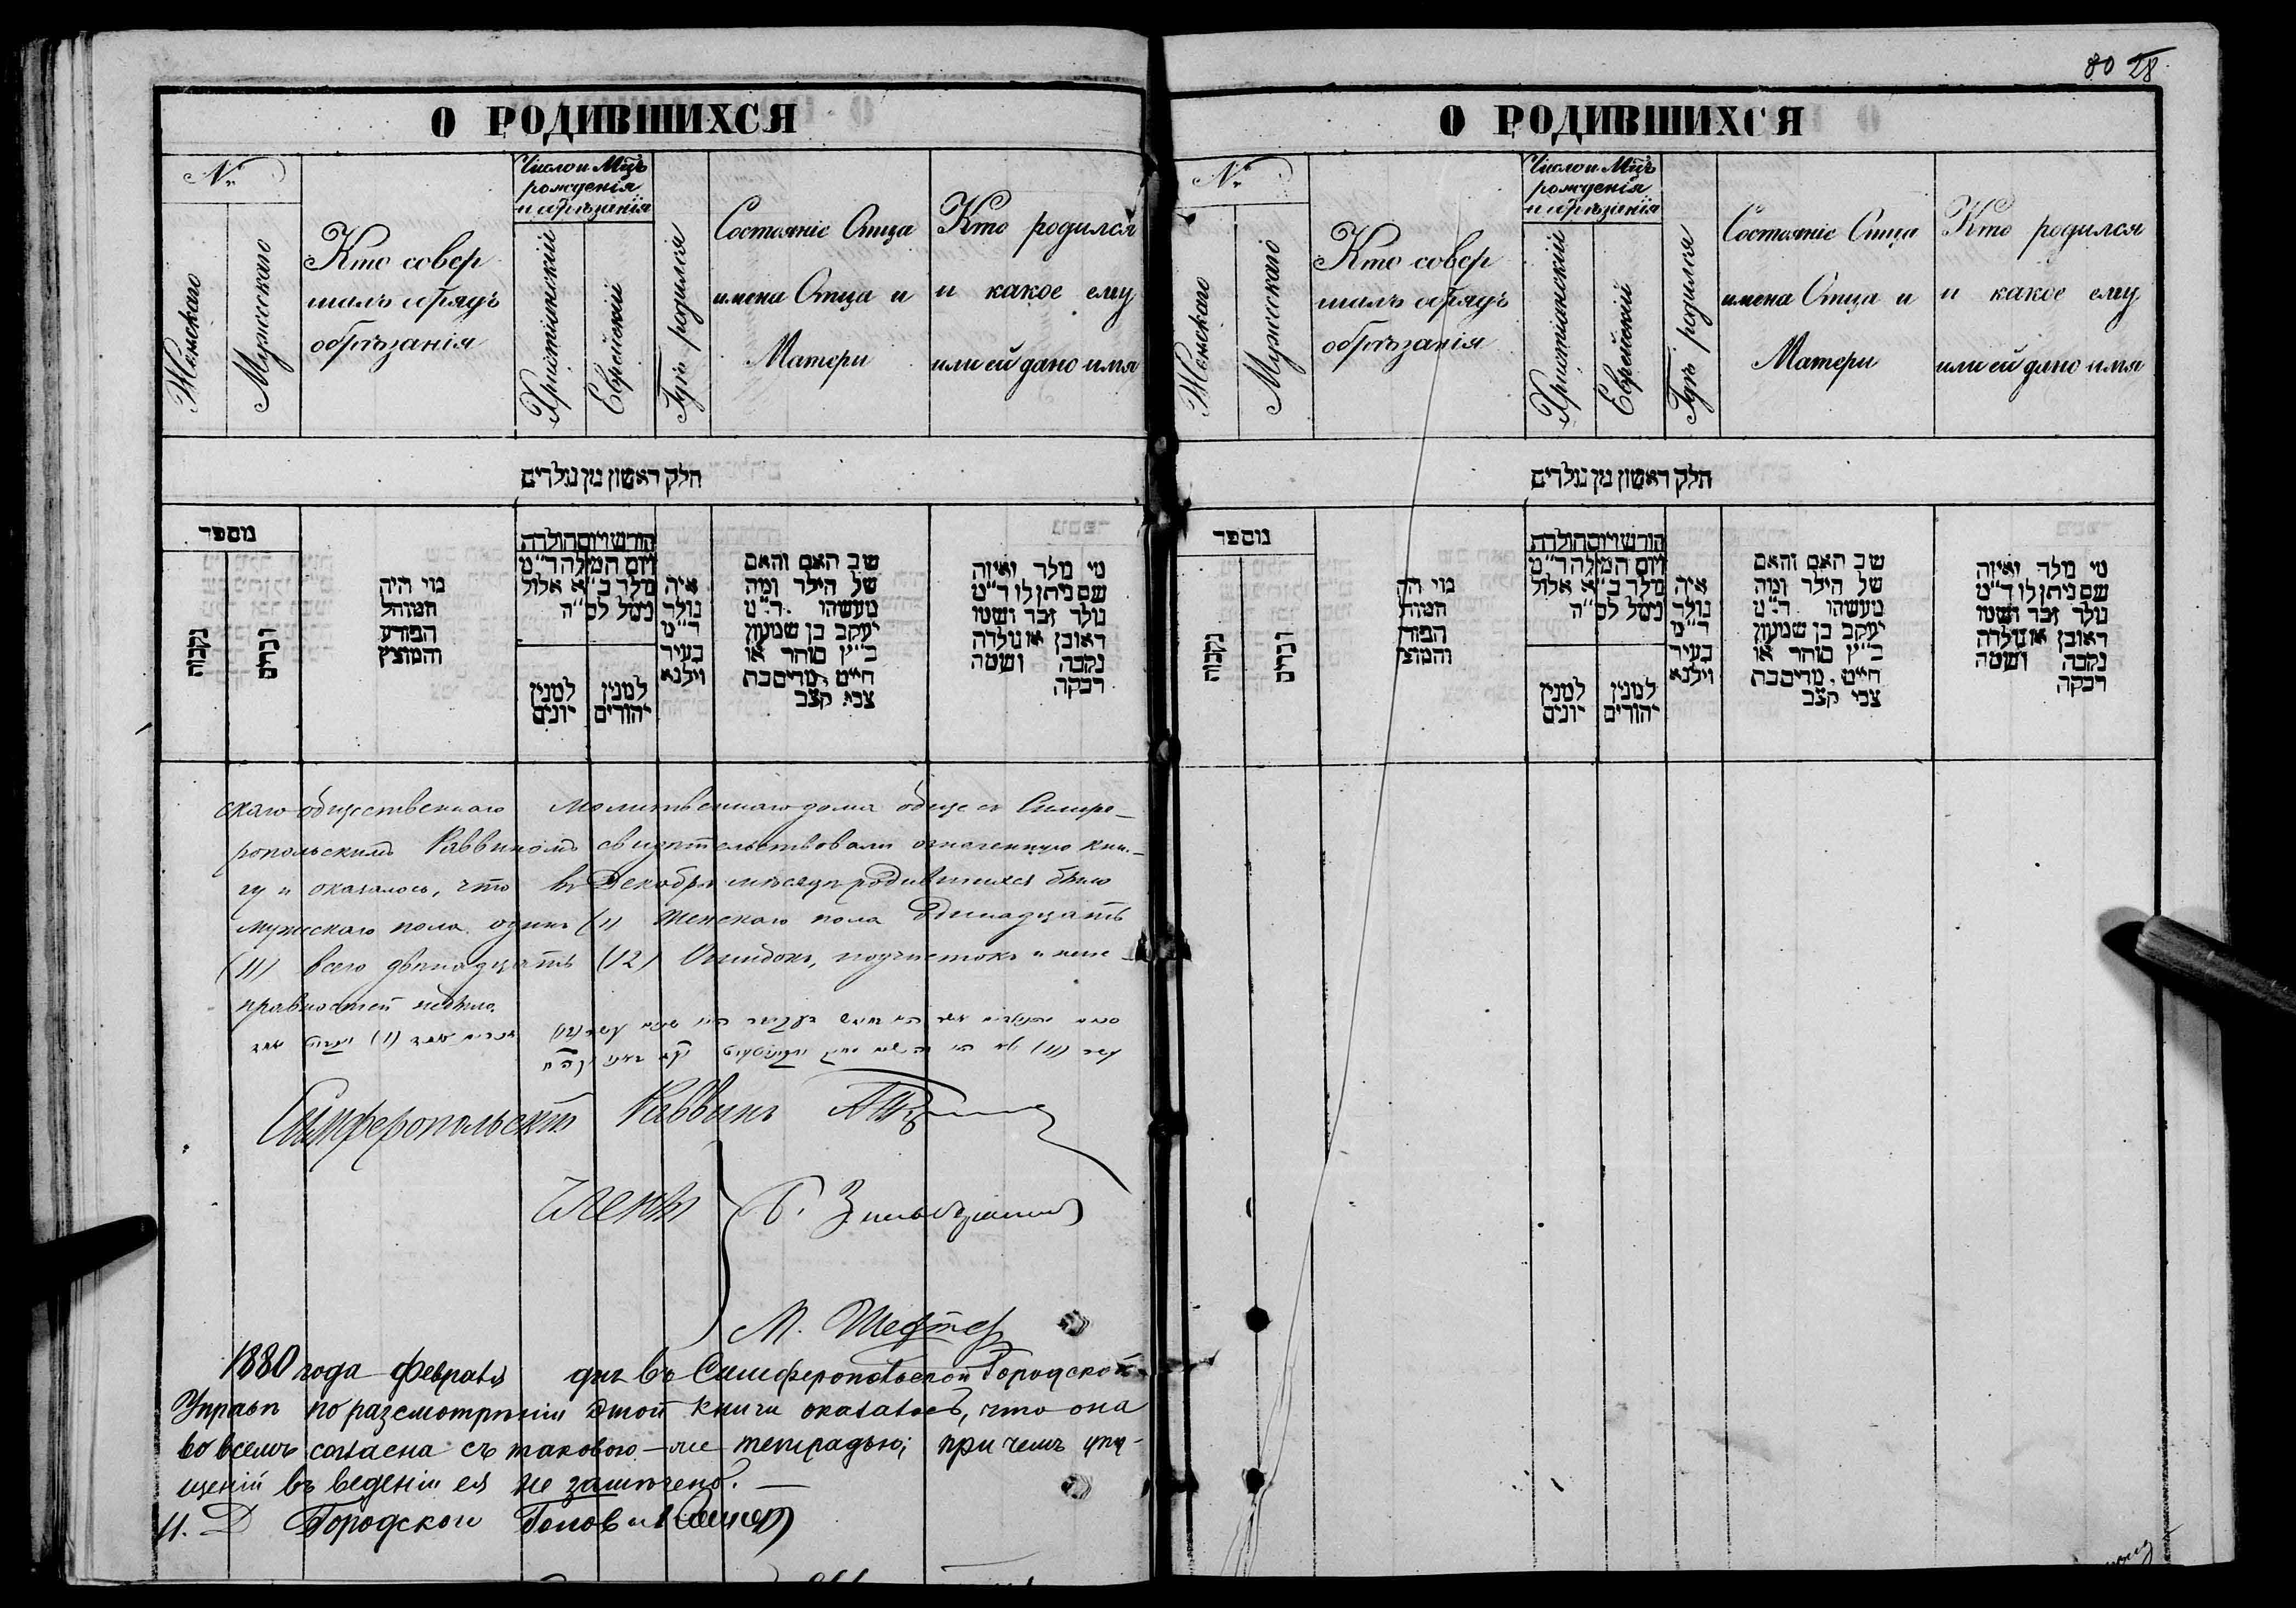 80 28
О РОДИВШИХСЯ
№
Женскаго
Мужескаго
Кто совер
шалъ обрядъ
обрѣзанія
Число и Мцъ
рожденія
и обрѣзанія
Христіанскій
Еврейскій
Гдѣ родился
Состояніе Отца
имена Отца и
Матери
Кто родился
и какое ему
или ей дано имя
חלק ראשון מן נולדים
מספר
נקבות
זכרים
מי היה
המוהל
הפורע
והמוצץ
חודש ויום הולדת
ויום המילה ד"מ
מלד ב"א אלול
למנין
יונים
למנין
יהודים
איה
נולד
ד"מ
בעיר
ווילנא
שב האם והאם
של הילד ומה
מעשהו ד"מ
יעקב בן שמעון
כ"ץ סוחר או
חייט מרים בת
צבי קצב
מי מלד ואיזה
שם ניתן לו ד"מ
נולד זכר ושמו
ראובן או נולדה
נקבה ושמה
רבקה
скаго общественнаго молитвеннаго дома обще съ Симфе-
ропольскимъ Раввиномъ свидѣтельствовали означенную кни-
гу и оказалось, что въ Декабрѣ мѣсяцѣ родившихся было
мужескаго пола одинъ (1) женскаго пола одинадцать
(11) всего двѣнадцать (12) Ошибокъ, подчистокъ и неис-
правностей небыло.
Симферопольскій Раввинъ
Члены
М. Шефтер
1880 года февраля дня въ Симферопольской Городской
Управѣ по разсмотрѣніи этой книги оказалось, что она
во всемъ согласна съ таковою-же тетрадью; при чемъ упу-
щеній въ веденіи ея не замѣчено. —
И. Д Городскои Голов
О РОДИВШИХСЯ
№
Женскаго
Мужескаго
Кто совер
шалъ обрядъ
обрѣзанія
Число и Мцъ
рожденія
и обрѣзанія
Христіанскій
Еврейскій
Гдѣ родился
Состояніе Отца
имена Отца и
Матери
Кто родился
и какое ему
или ей дано имя
חלק ראשון מן נולדים
מספר
נקבות
זכרים
מי הי
המוה
הפור
והמוצ
חודש ויום הולדת
ויום המילה ד"מ
מלד ב"א אלול
למנין
יונים
למנין
יהודים
איה
נולד
ד"מ
בעיר
ווילנא
שב האם והאם
של הילד ומה
מעשהו ד"מ
יעקב בן שמעון
כ"ץ סוחר או
חייט מרים בת
צבי קצב
מי מלד ואיזה
שם ניתן לו ד"מ
נולד זכר ושמו
ראובן או נולדה
נקבה ושמה
רבקה